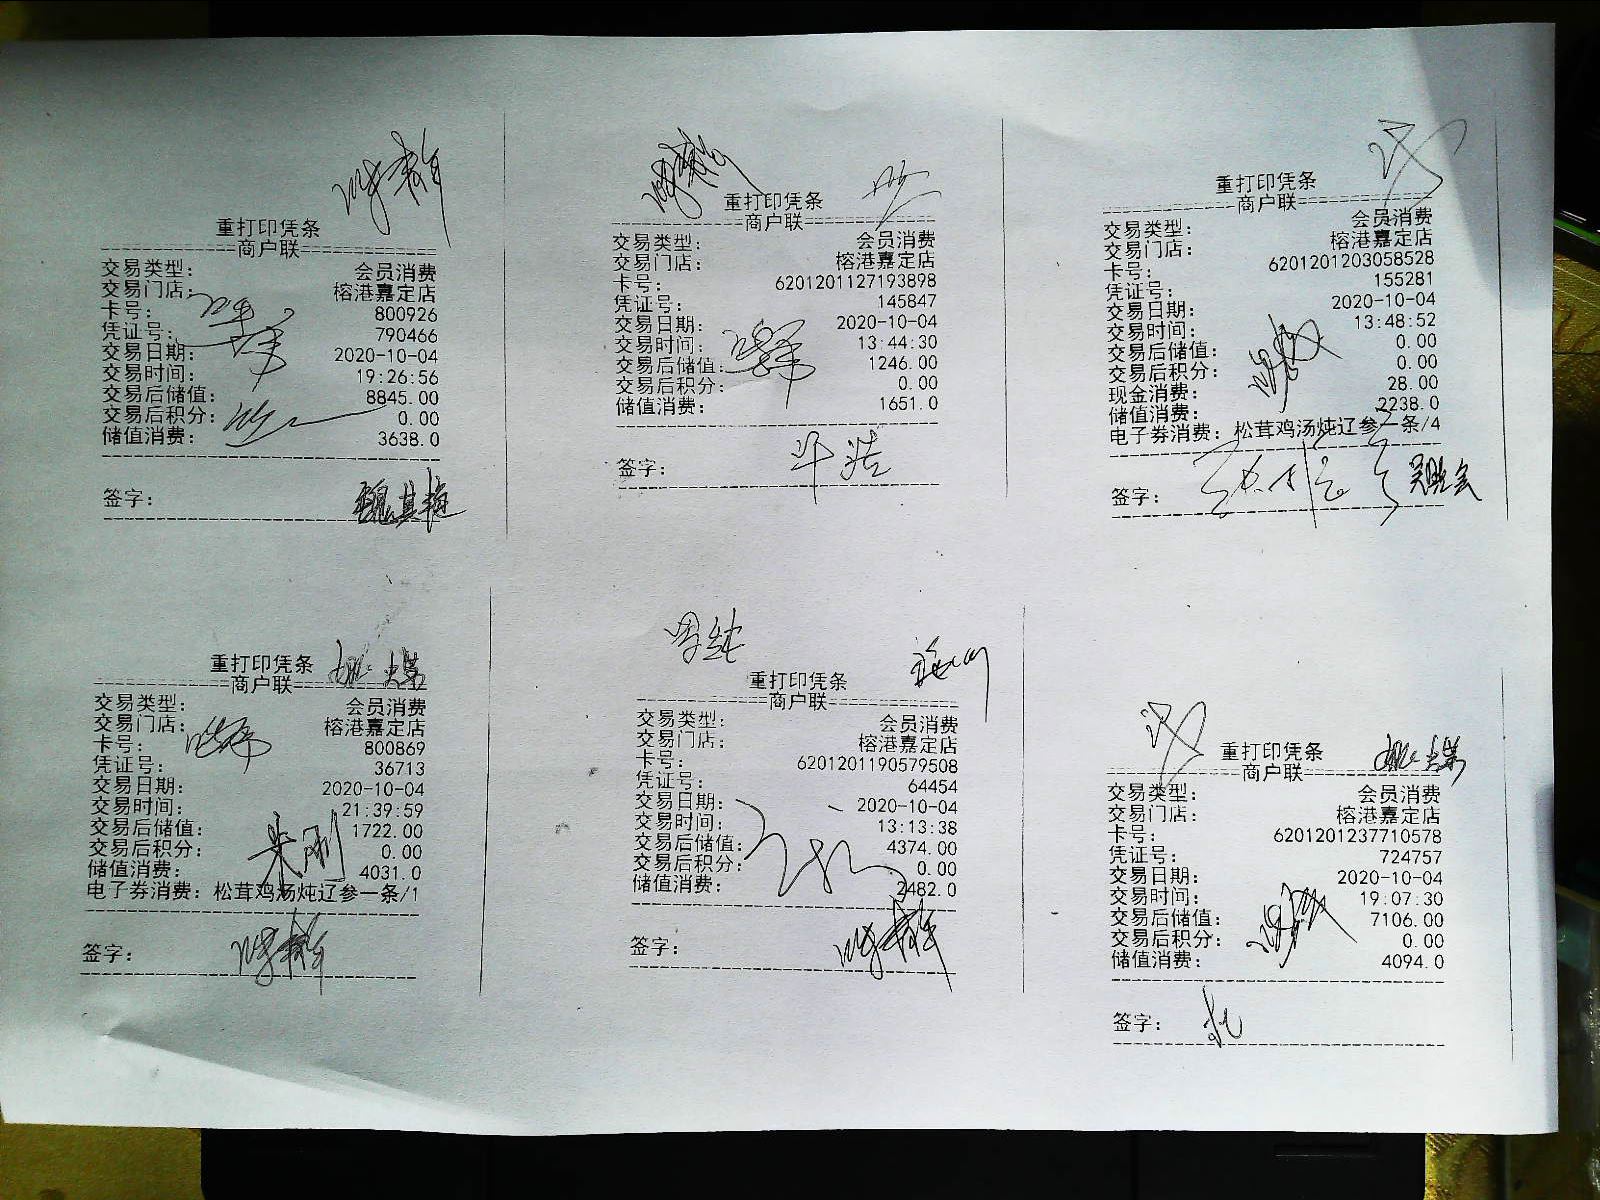 重打印凭条
商户联
交易类型： 会员消费
交易门店： 榕港嘉定店
卡号： 800926
凭证号： 790466
交易日期： 2020-10-04
交易时间： 19:26:56
交易后储值： 8845.00
交易后积分： 0.00
储值消费： 3638.0
签字： 魏其梅
重打印凭条
商户联
交易类型： 会员消费
交易门店： 榕港嘉定店
卡号： 6201201127193898
凭证号： 145847
交易日期： 2020-10-04
交易时间： 13:44:30
交易后储值： 1246.00
交易后积分： 0.00
储值消费： 1651.0
签字：
重打印凭条
商户联
交易类型： 会员消费
交易门店： 榕港嘉定店
卡号： 6201201203058528
凭证号： 155281
交易日期： 2020-10-04
交易时间： 13:48:52
交易后储值： 0.00
交易后积分： 0.00
现金消费： 28.00
储值消费： 2238.0
电子券消费：松茸鸡汤炖辽参一条/4
签字：
重打印凭条
商户联
交易类型： 会员消费
交易门店： 榕港嘉定店
卡号： 800869
凭证号： 36713
交易日期： 2020-10-04
交易时间： 21:39:59
交易后储值： 1722.00
交易后积分： 0.00
储值消费： 4031.0
电子券消费：松茸鸡汤炖辽参一条/1
签字：
重打印凭条
商户联
交易类型： 会员消费
交易门店： 榕港嘉定店
卡号： 6201201190579508
凭证号： 64454
交易日期： 2020-10-04
交易时间： 13:13:38
交易后储值： 4374.00
交易后积分： 0.00
储值消费： 2482.0
签字：
重打印凭条
商户联
交易类型： 会员消费
交易门店： 榕港嘉定店
卡号： 6201201237710578
凭证号： 724757
交易日期： 2020-10-04
交易时间： 19:07:30
交易后储值： 7106.00
交易后积分： 0.00
储值消费： 4094.0
签字：